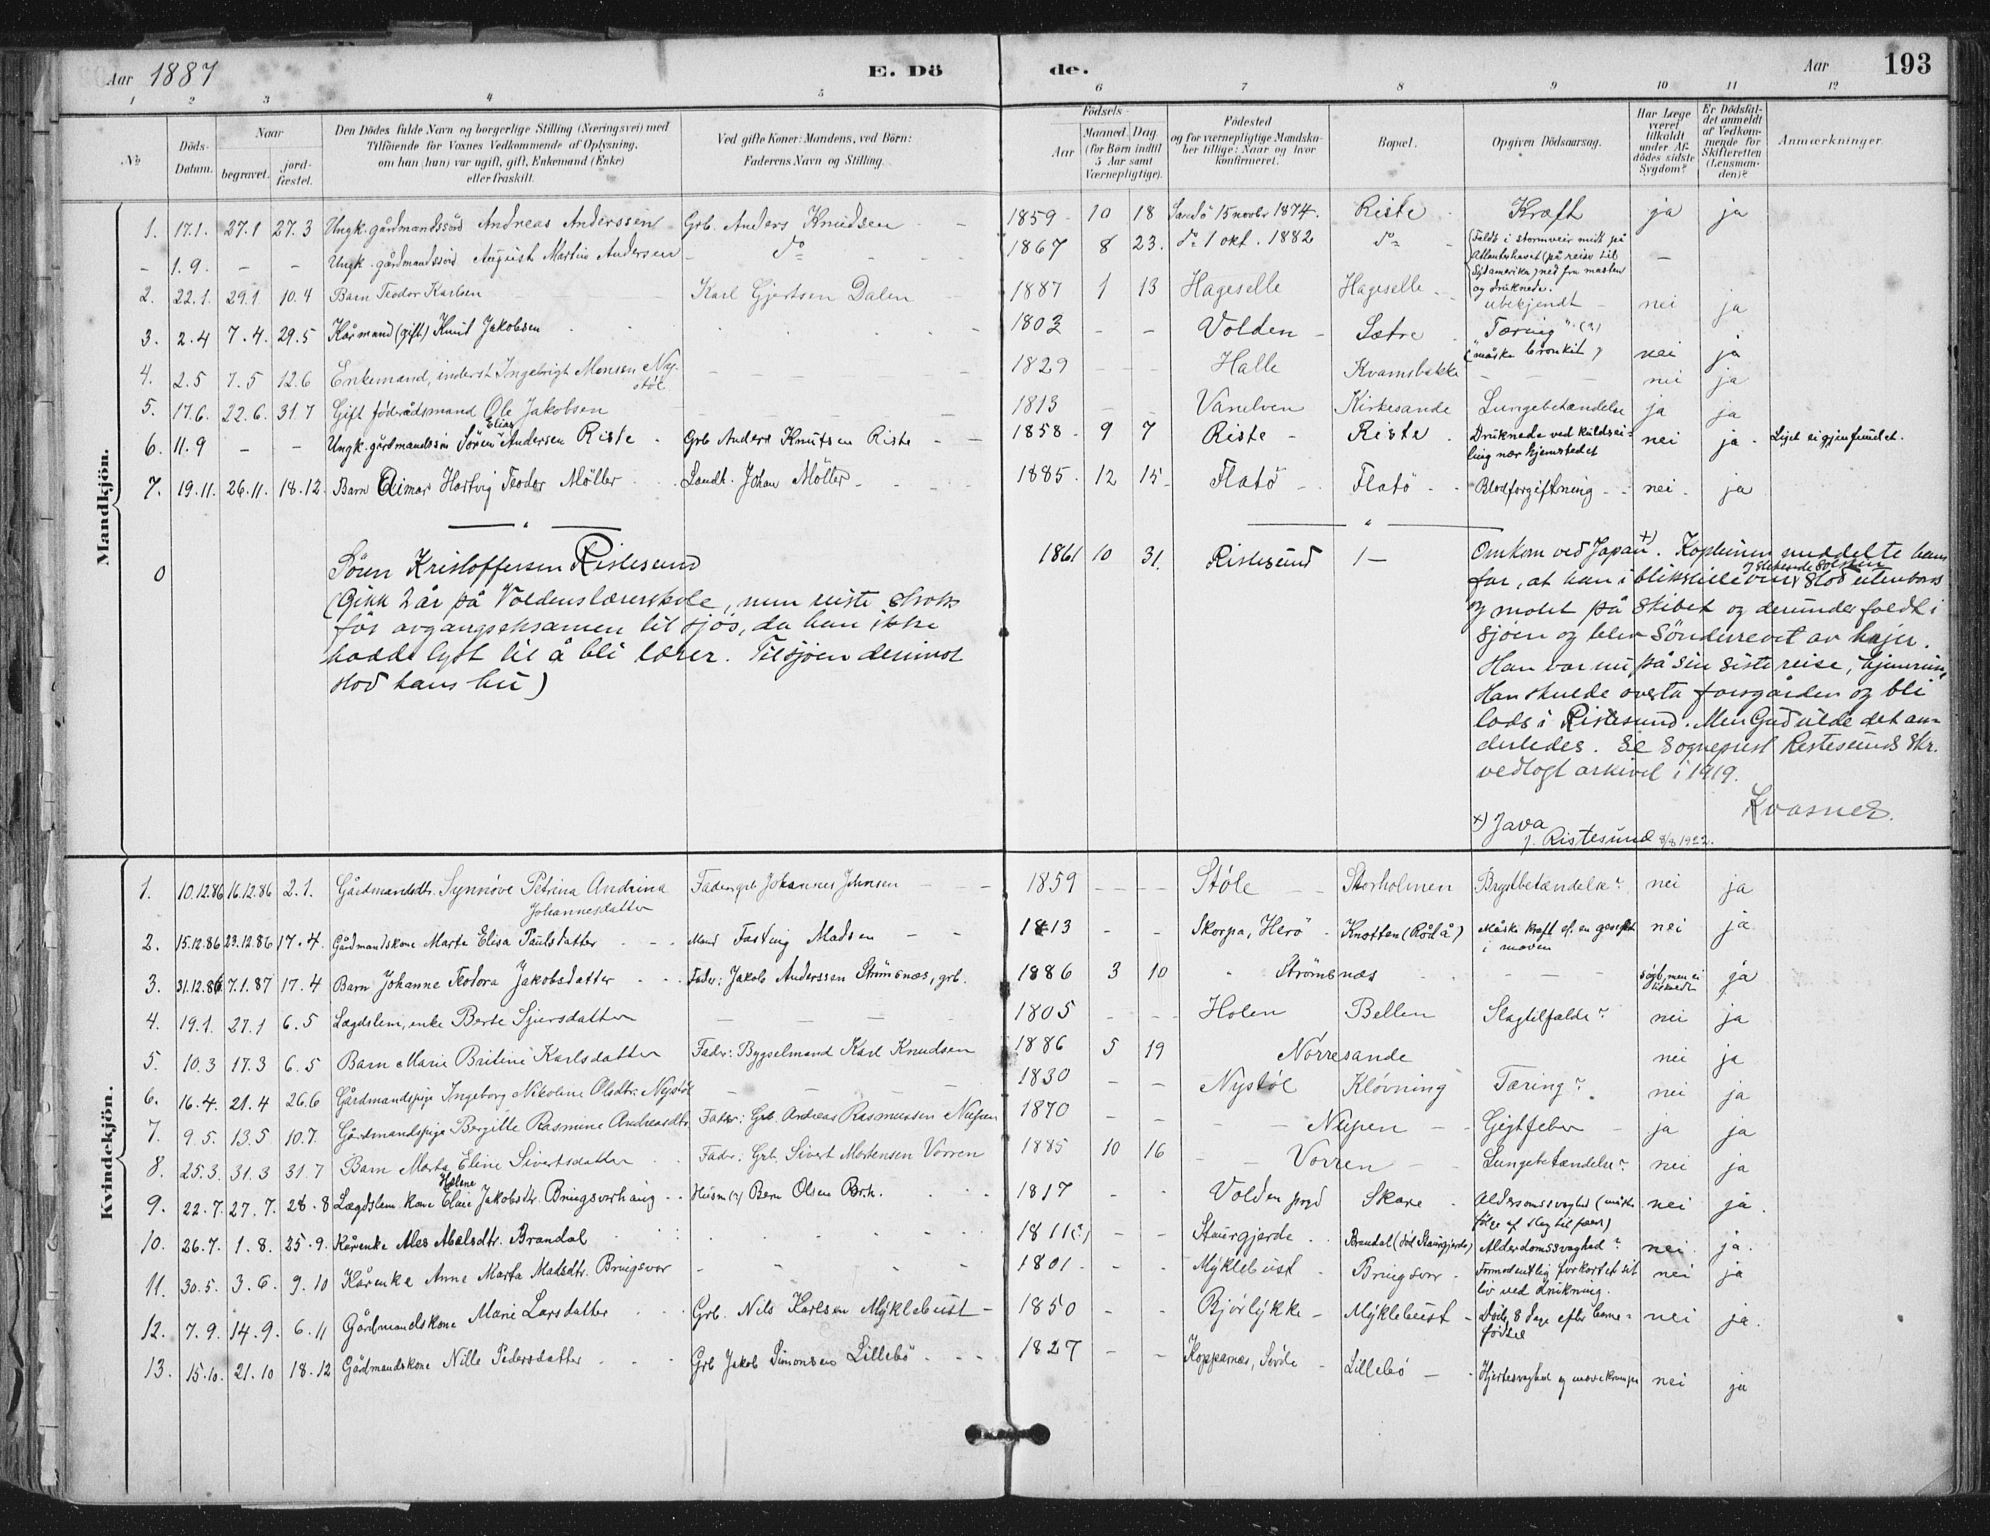 Aar 1887
E. Döde.
Aar 193
1 2 3 4 5 6 7 8 9 10 11 12
No
Döds-Datum.
Naar
begravet.
jord-fæstet.
Den Dödes fulde Navn og borgerlige Stilling (Næringsvei) med
Tilföiende for Voxnes Vedkommende af Oplysning,
om han (hun) var ugift, gift, Enkemand (Enke)
eller fraskilt.
Ved gifte Koner: Mandens, ved Börn:
Faderens Navn og Stilling.
Födsels-
Aar
Maaned. (for Börn indtil 5 Aar samt Værnepligtige).
Dag.
Födested
og for værnepligtige Mandskaber tillige: Naar og hvor konfirmeret.
Bopæl.
Opgiven Dödsaarsag.
Har Læge været tilkaldt under Afdödes sidste Sygdom?
Er Dödsfaldet anmeldt af Vedkommende for Skifteretten (Lensmanden)?
Anmærkninger.
Mandkjön.
1. 17.1. 27.1 27.3 Ungk. gårdmandssöd Andreas Anderssen Grb. Anders Knudsen - 1859 - 10 18 Sandö 15 novbr 1874. Riste Kræft ja ja
- 1.9. - - Ungk. gårdmandssöd August Martin Andersen do 1867 8 23. do 1 okt. 1882 do (Faldt i stormveir midt på
Atlanterhavet (på reise til
Sydamerika) ned fra masten
og druknede. -
2. 22.1. 29.1 10.4 Barn Teodor Karlsen Karl Gjertsen Dalen 1887 1 13 Hageselle Hageselle ubekjendt nei ja
3. 2.4 7.4. 29.5 Kårmand (gift) Knut Jakobsen 1803 - - Volden - Sætre "Tæring" (?)
(måske bronkit) nei ja
4. 2.5 7.5 12.6 Enkemand, inderst Ingebrigt Monsen Ny-
støl 1829 - - - Halle Kvamsbakke - nei ja
5. 17.6. 22.6. 31.7 Gift føderådsmand Ole Jakobsen 1813 - - Vanelven Kirkesande Lungebetændelse ja ja
6. 11.9 - - Ungk. gårdmandssön Sören Elias Andersen Riste - Grb Anders Knutsen Riste - - 1858 - 9 7 Riste - Riste Druknede ved kuldsei-
ling nær hjemstedet nei ja - Liget ei gjenfundet.
7. 19.11. 26.11. 18.12. Barn Elimar Hartvig Teodor Möller Landh. Johan Möller - 1885. 12 15 - Flatö - Flatö - Blodforgiftning - nei - ja
0 Sören Kristoffersen Ristesund 1861 10 31. Ristesund 1 -
(Gikk 2 år på Voldens lærerskole, men reiste straks
før avgangseksamen til sjøs, da han ikke
hadde lyst til å bli lærer. Til sjøen derimot
stod hans hu)
Omkom ved Japan x). Kapteinen meddelte hans
far, at han i blikstille veir og stekende solskin stod utenbords
og malet på skibet og derunder faldt i
sjøen og blev sønderrevet av haier.
Han var nu på sin siste reise, hjemreisen.
Han skulde overta farsgården og bli
lods i Ristesund. Men Gud vilde det an-
derledes. Se sogneprest Ristesunds skr.
vedlagt arkivet i 1919.
Kvasnes.
x) Java
J. Ristesund 8/8 1922.
Kvindekjön.
1. 10.12.86 16.12.86 2.1. Gårdmandsdtr. Synnöve Petrina Andrina
Johannesdatter Fader: grb Johannes Johnsen 1859 - - - Støle - Storholmen Brystbetændelse? nei ja
2. 15.12.86 23.12.86 17.4. Gårdmandskone Marte Elisa Paulsdatter - Mand Fasting Madsen - - 1813 - - Skorpa, Herö - Knotten (Rödå) Måske kræft el. en gesvulst
i maven nei ja
3. 31.12.86 7.1.87 17.4 Barn Johanne Teodora Jakobsdatter - Fader: Jakob Anderssen Strömsnæs, grb. 1886 3 10 " Strömsnæs - - - ja
4. 19.1. 27.1 6.5 Lægdslem, enke Berte Sjursdatter - - - 1805 - - Holen Bellen Slagtilfælde? nei ja
5. 10.3 17.3 6.5 Barn Marie Britine Karlsdatter Fader: Bygselmand Karl Knudsen 1886 5 19 Nörresande nei ja
6. 16.4. 21.4 26.6 Gårdmandspige Ingeborg Nikoline Olsdtr. Nystöl - - 1830 - - Nystöl Klövning Tæring? nei ja
7. 9.5. 13.5 10.7. Gårdmandspige Bergitte Rasmine Andreasdtr Fader: Grb. Andreas Rasmussen Nupen 1870 - - - - Nupen - - Gigtfeber - ja ja
8. 25.3. 31.3 31.7 Barn Marta Eline Sivertsdatter Fader: Grb. Sivert Mortensen Vorren 1885 10 16 - - Vorren - - Lungebetændelse? nei ja
9. 22.7. 27.7. 28.8 Lægdslem kone Elen Helene Jakobsdtr. Bringsvorhaug - Husm (?) Bern Olsen 1817 - - Volden prgd Skare Aldersomssvaghed (måske
følge af slagtilfæld) nei ja.
10. 26.7. 1.8. 25.9. Kårenke Ales Abelsdtr. Brandal 1811(?) - - Staurgjerde Brandal (död Staurgjerde) Alderdomssvaghed? nei - ja.
11. 30.5. 3.6. 9.10 Kårenke Anne Marta Madsdtr. Bringsvor - - 1801 - - Myklebust - Bringsvor - Formodentlig forkortet sit
liv ved drikning. nei ja
12. 7.9. 14.9. 6.11 Gårdmandskone Marie Larsdatter Grb. Nils Karlsen Myklebust - 1850 - - Bjørlykke - Myklebust - Döde 8 dage efter barne-
fødsel nei ja.
13. 15.10. 21.10 18.12 Gårdmandskone Nille Pedersdatter Grb Jakob Simonsen Lillebö - - - 1827 - - Kopparnæs, Sövde - Lillebö - Hjertesvaghed og mavekrampe nei ja